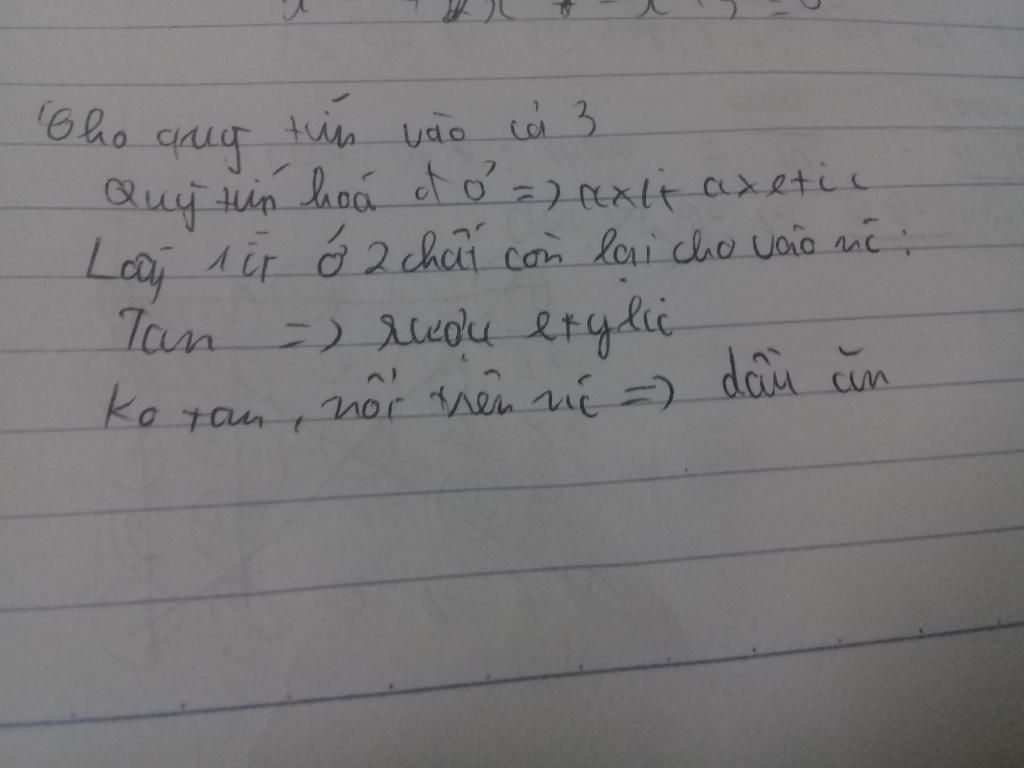 Cho quỳ tím vào cả 3
Quỳ tím hoá đỏ => axit axetic
Lấy 1 ít ở 2 chất còn lại cho vào nc:
Tan => rượu etylic
Ko tan, nổi trên nc => dầu ăn